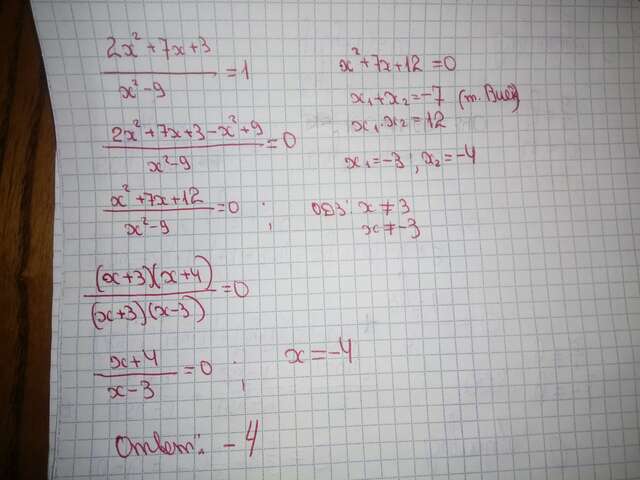 (2x²+7x+3)/(x²-9) = 1
(2x²+7x+3-x²+9)/(x²-9) = 0
(x²+7x+12)/(x²-9) = 0 ; ОДЗ: x ≠ 3
x ≠ -3
((x+3)(x+4))/((x+3)(x-3)) = 0
(x+4)/(x-3) = 0 ; x = -4
Ответ: -4
x²+7x+12 = 0
x₁+x₂ = -7 (т. Виет)
x₁·x₂ = 12
x₁ = -3 ; x₂ = -4